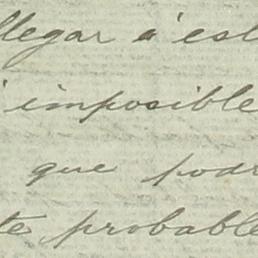 llegar á est
imposible
que podr
te probable